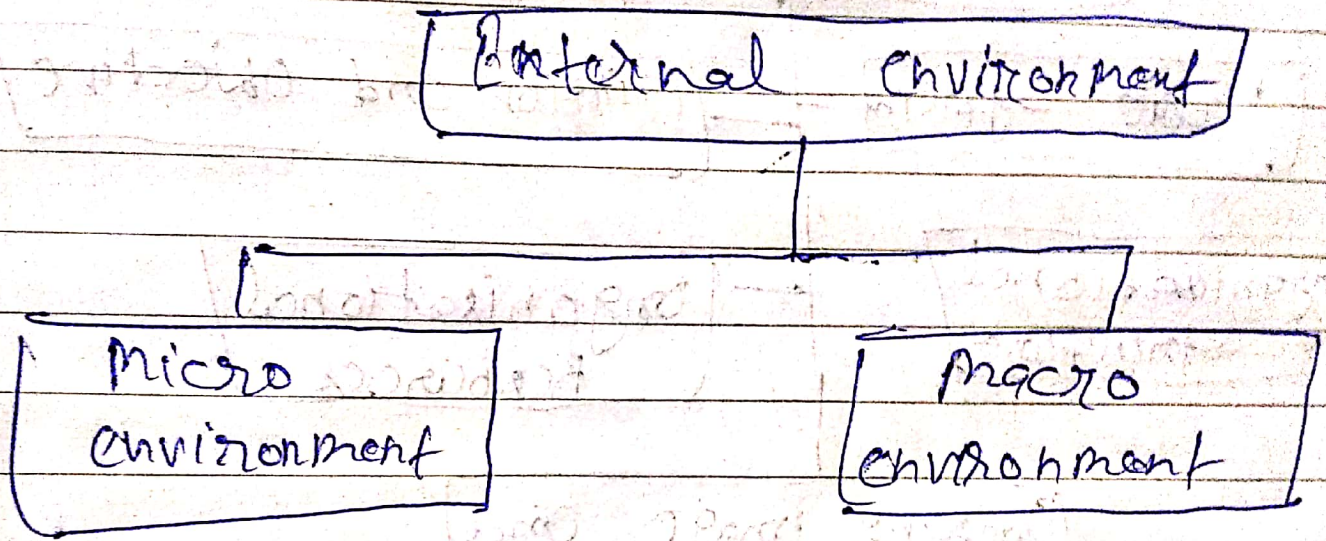 External environment
Micro
environment
Macro
environment